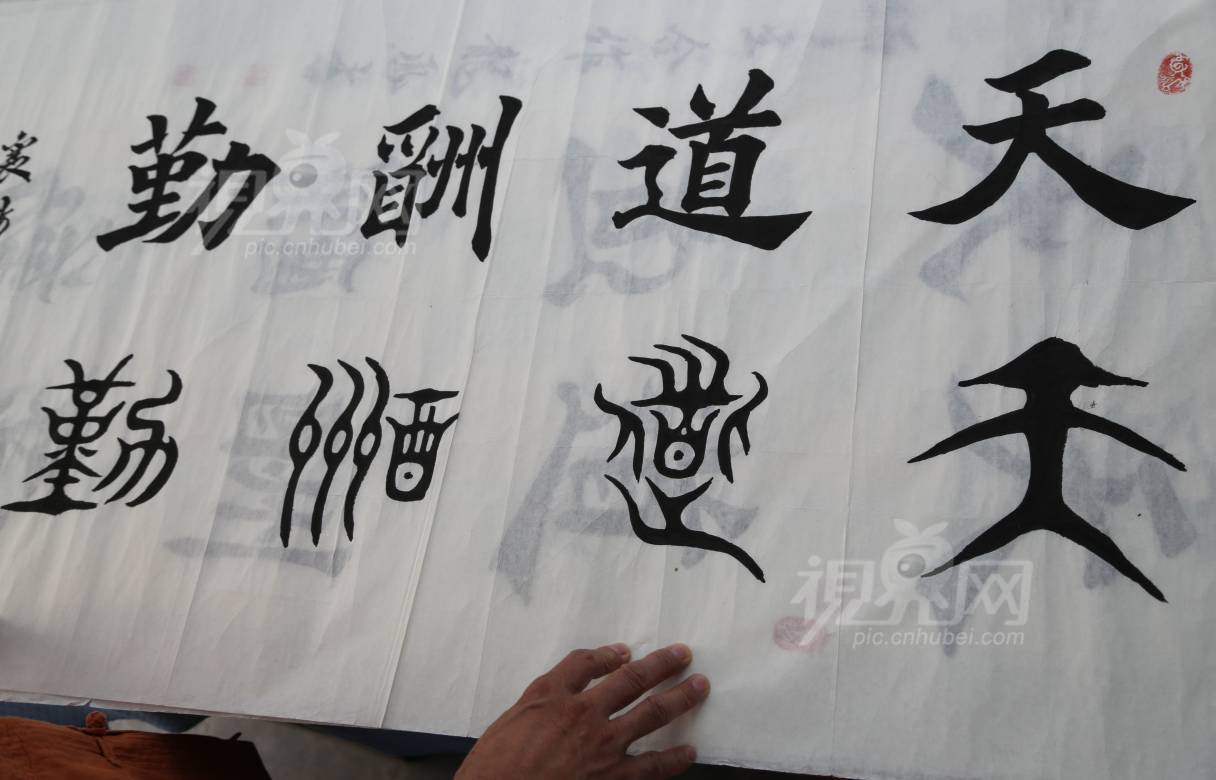 天道酬勤
天道酬勤
視界网
pic.cnhubei.com
視界网
pic.cnhubei.com